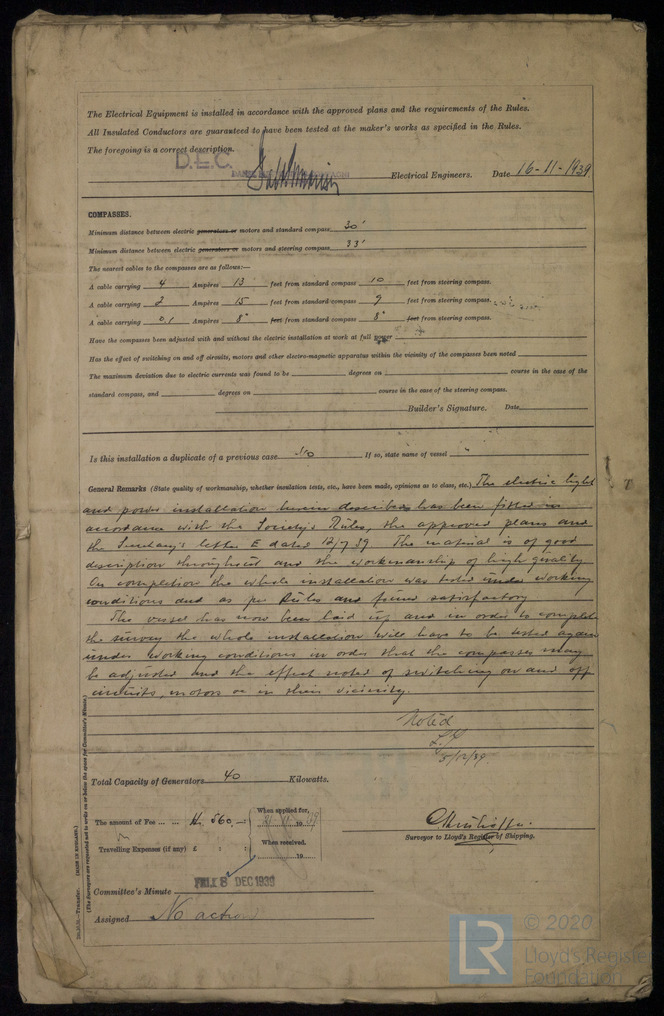 The Electrical Equipment is installed in accordance with the approved plans and the requirements of the Rules.
All Insulated Conductors are guaranteed to have been tested at the maker's works as specified in the Rules.
The foregoing is a correct description.
D.E.C.
Electrical Engineers. Date 16-11-1939
COMPASSES.
Minimum distance between electric generators or motors and standard compass 30'
Minimum distance between electric generators or motors and steering compass 33'
The nearest cables to the compasses are as follows:—
A cable carrying 4 Ampères 13 feet from standard compass 10 feet from steering compass.
A cable carrying 2 Ampères 15 feet from standard compass 9 feet from steering compass.
A cable carrying 0,1 Ampères 8" feet from standard compass 8" feet from steering compass.
Have the compasses been adjusted with and without the electric installation at work at full power
Has the effect of switching on and off circuits, motors and other electro-magnetic apparatus within the vicinity of the compasses been noted
The maximum deviation due to electric currents was found to be degrees on course in the case of the
standard compass, and degrees on course in the case of the steering compass.
Builder's Signature. Date
Is this installation a duplicate of a previous case No If so, state name of vessel "
General Remarks (State quality of workmanship, whether insulation tests, etc., have been made, opinions as to class, etc.) The electric light
and power installation herein described has been fitted in
accordance with the Society's Rules, the approved plans and
the Secretary's letter E dated 12/7/39 The material is of good
description throughout and the workmanship of high quality
On completion the whole installation was tested under working
conditions and as per Rules and found satisfactory
The vessel has now been laid up and in order to complete
the survey the whole installation will have to be tested again
under working conditions in order that the compasses may
be adjusted and the effect noted of switching on and off
circuits, motors or in their vicinity.
Noted
5/12/39.
Total Capacity of Generators 40 Kilowatts.
The amount of Fee ... ... 560.—
When applied for,
19 39
Travelling Expenses (if any) £ : :
When received.
19
Surveyor to Lloyd's Register of Shipping.
Committee's Minute FRI. 8 DEC 1939
Assigned No action
(The Surveyors are requested not to write on or below the space for Committee's Minute.)
Transfer. (MADE IN ENGLAND.)
LR © 2020
Lloyd's Register
Foundation